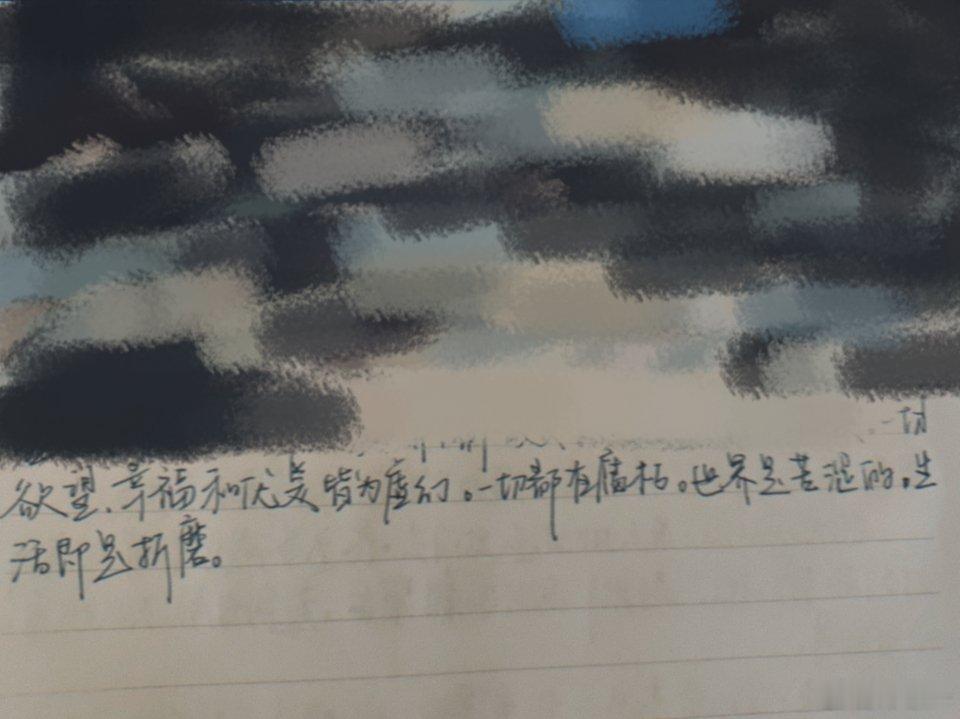 一切
欲望、幸福和优美皆为虚幻。一切都有腐朽。世界是苦涩的。生
活即是折磨。